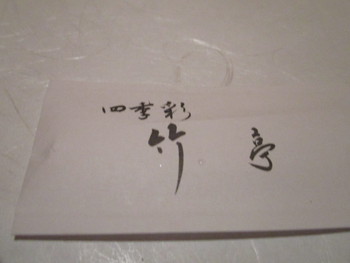 四季彩
竹亭